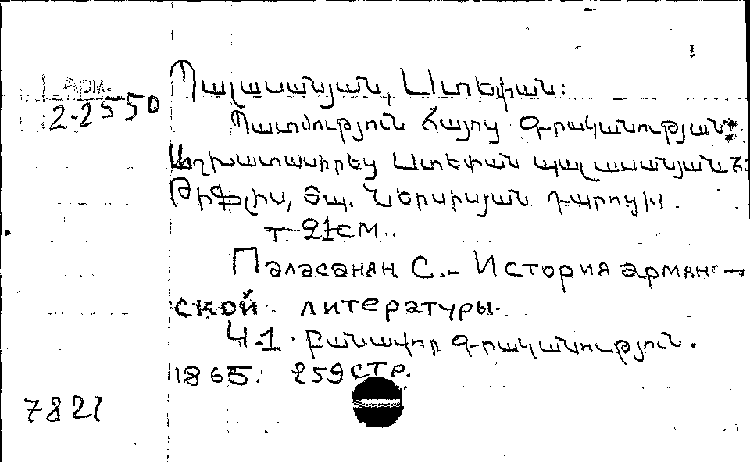 Арм.
2-2550
Պալասանյան, Ստեփան:
Պատմություն հայոց գրականության:
Աշխատասիրեց Ստեփան Պալասանյան:
Թիֆլիս, տպ. Ներսիսյան դպրոցի.
21см.
Паласанян С. - История армян-
ской литературы.
Ч-1. Բանավոր գրականություն.
1865. 259 стр.
7821